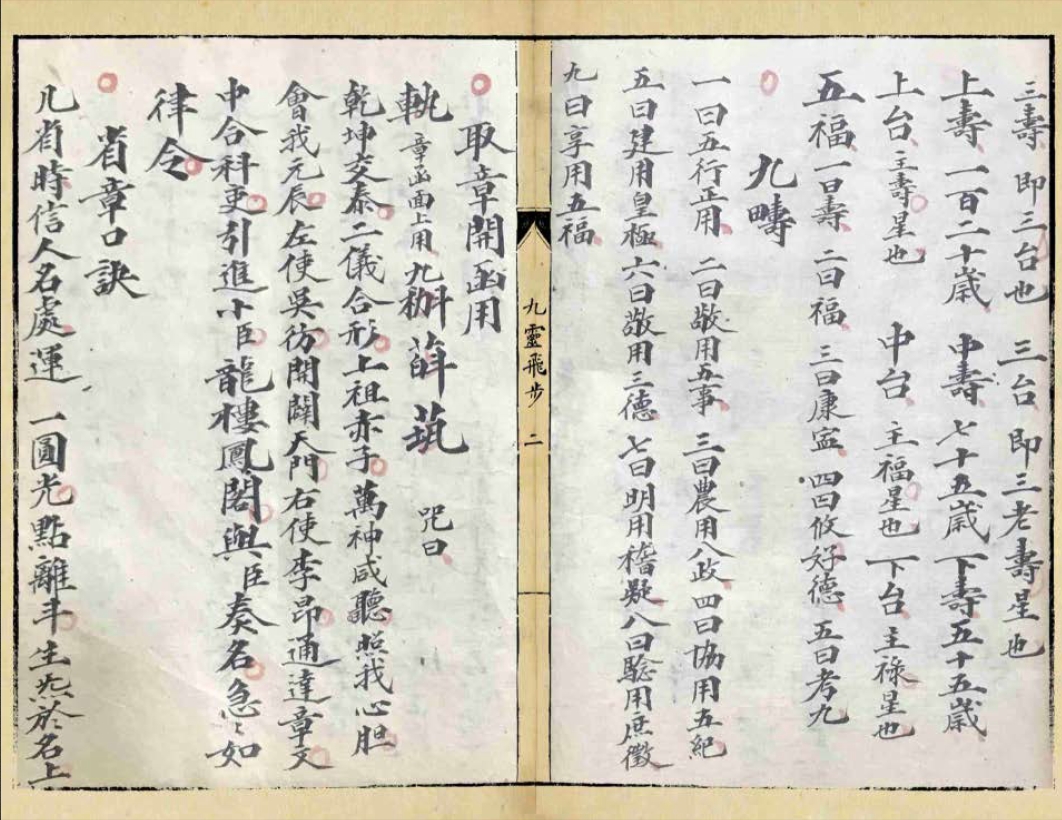 三壽即三台也 三台即三老壽星也
上壽一百二十歲 中壽七十五歲 下壽五十五歲
上台主壽星也 中台主福星也 下台主祿星也
五福 一曰壽 二曰福 三曰康寍 四曰攸好德 五曰考九
九疇
一曰五行正用 二曰敬用五事 三曰農用八政 四曰協用五紀
五曰建用皇極 六曰敬用三德 七曰明用稽疑 八曰騐用庶徵
九曰享用五福
九靈飛步 二
取章開函用
執章函面上用 九 咒曰
乾坤交泰二儀合形上祖赤子萬神咸聽照我心胆
會我元辰左使吳彷開闢天門右使李昂通達章文
中合科吏引進小臣龍樓鳳閣與臣奏名急〻如
律令
省章口訣
凡省時信人名處運 一圓光點離斗生炁於名上